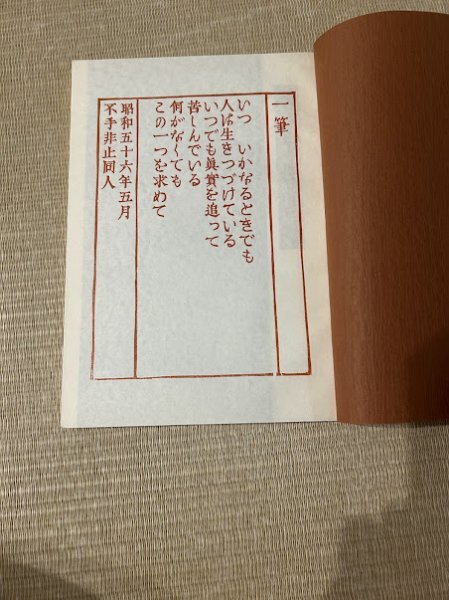 一筆
いつ いかなるときでも
人は生きつづけている
いつでも眞實を追って
苦しんでいる
何がなくても
この一つを求めて
昭和五十六年五月
不手非止同人